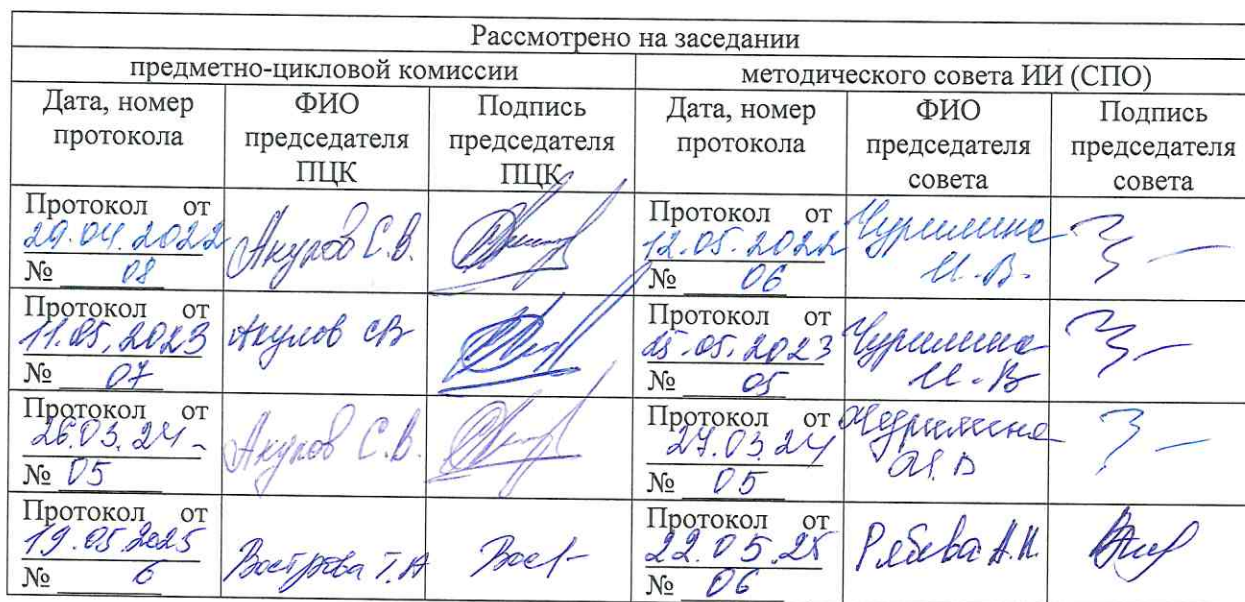 Рассмотрено на заседании
предметно-цикловой комиссии методического совета ИИ (СПО)
Дата, номер протокола ФИО председателя ПЦК Подпись председателя ПЦК Дата, номер протокола ФИО председателя совета Подпись председателя совета
Протокол от 29.04.2022 № 08 Акулов С.В. Протокол от 12.05.2022 № 06 Чурилина И.В.
Протокол от 11.05.2023 № 07 Акулов СВ Протокол от 25.05.2023 № 05 Чурилина И.В
Протокол от 26.03.24 № 05 Акулов С.В. Протокол от 27.03.24 № 05 Чурилина И.В
Протокол от 19.05.2025 № 6 Вострова Т.А Протокол от 22.05.25 № 06 Рябева А.И.